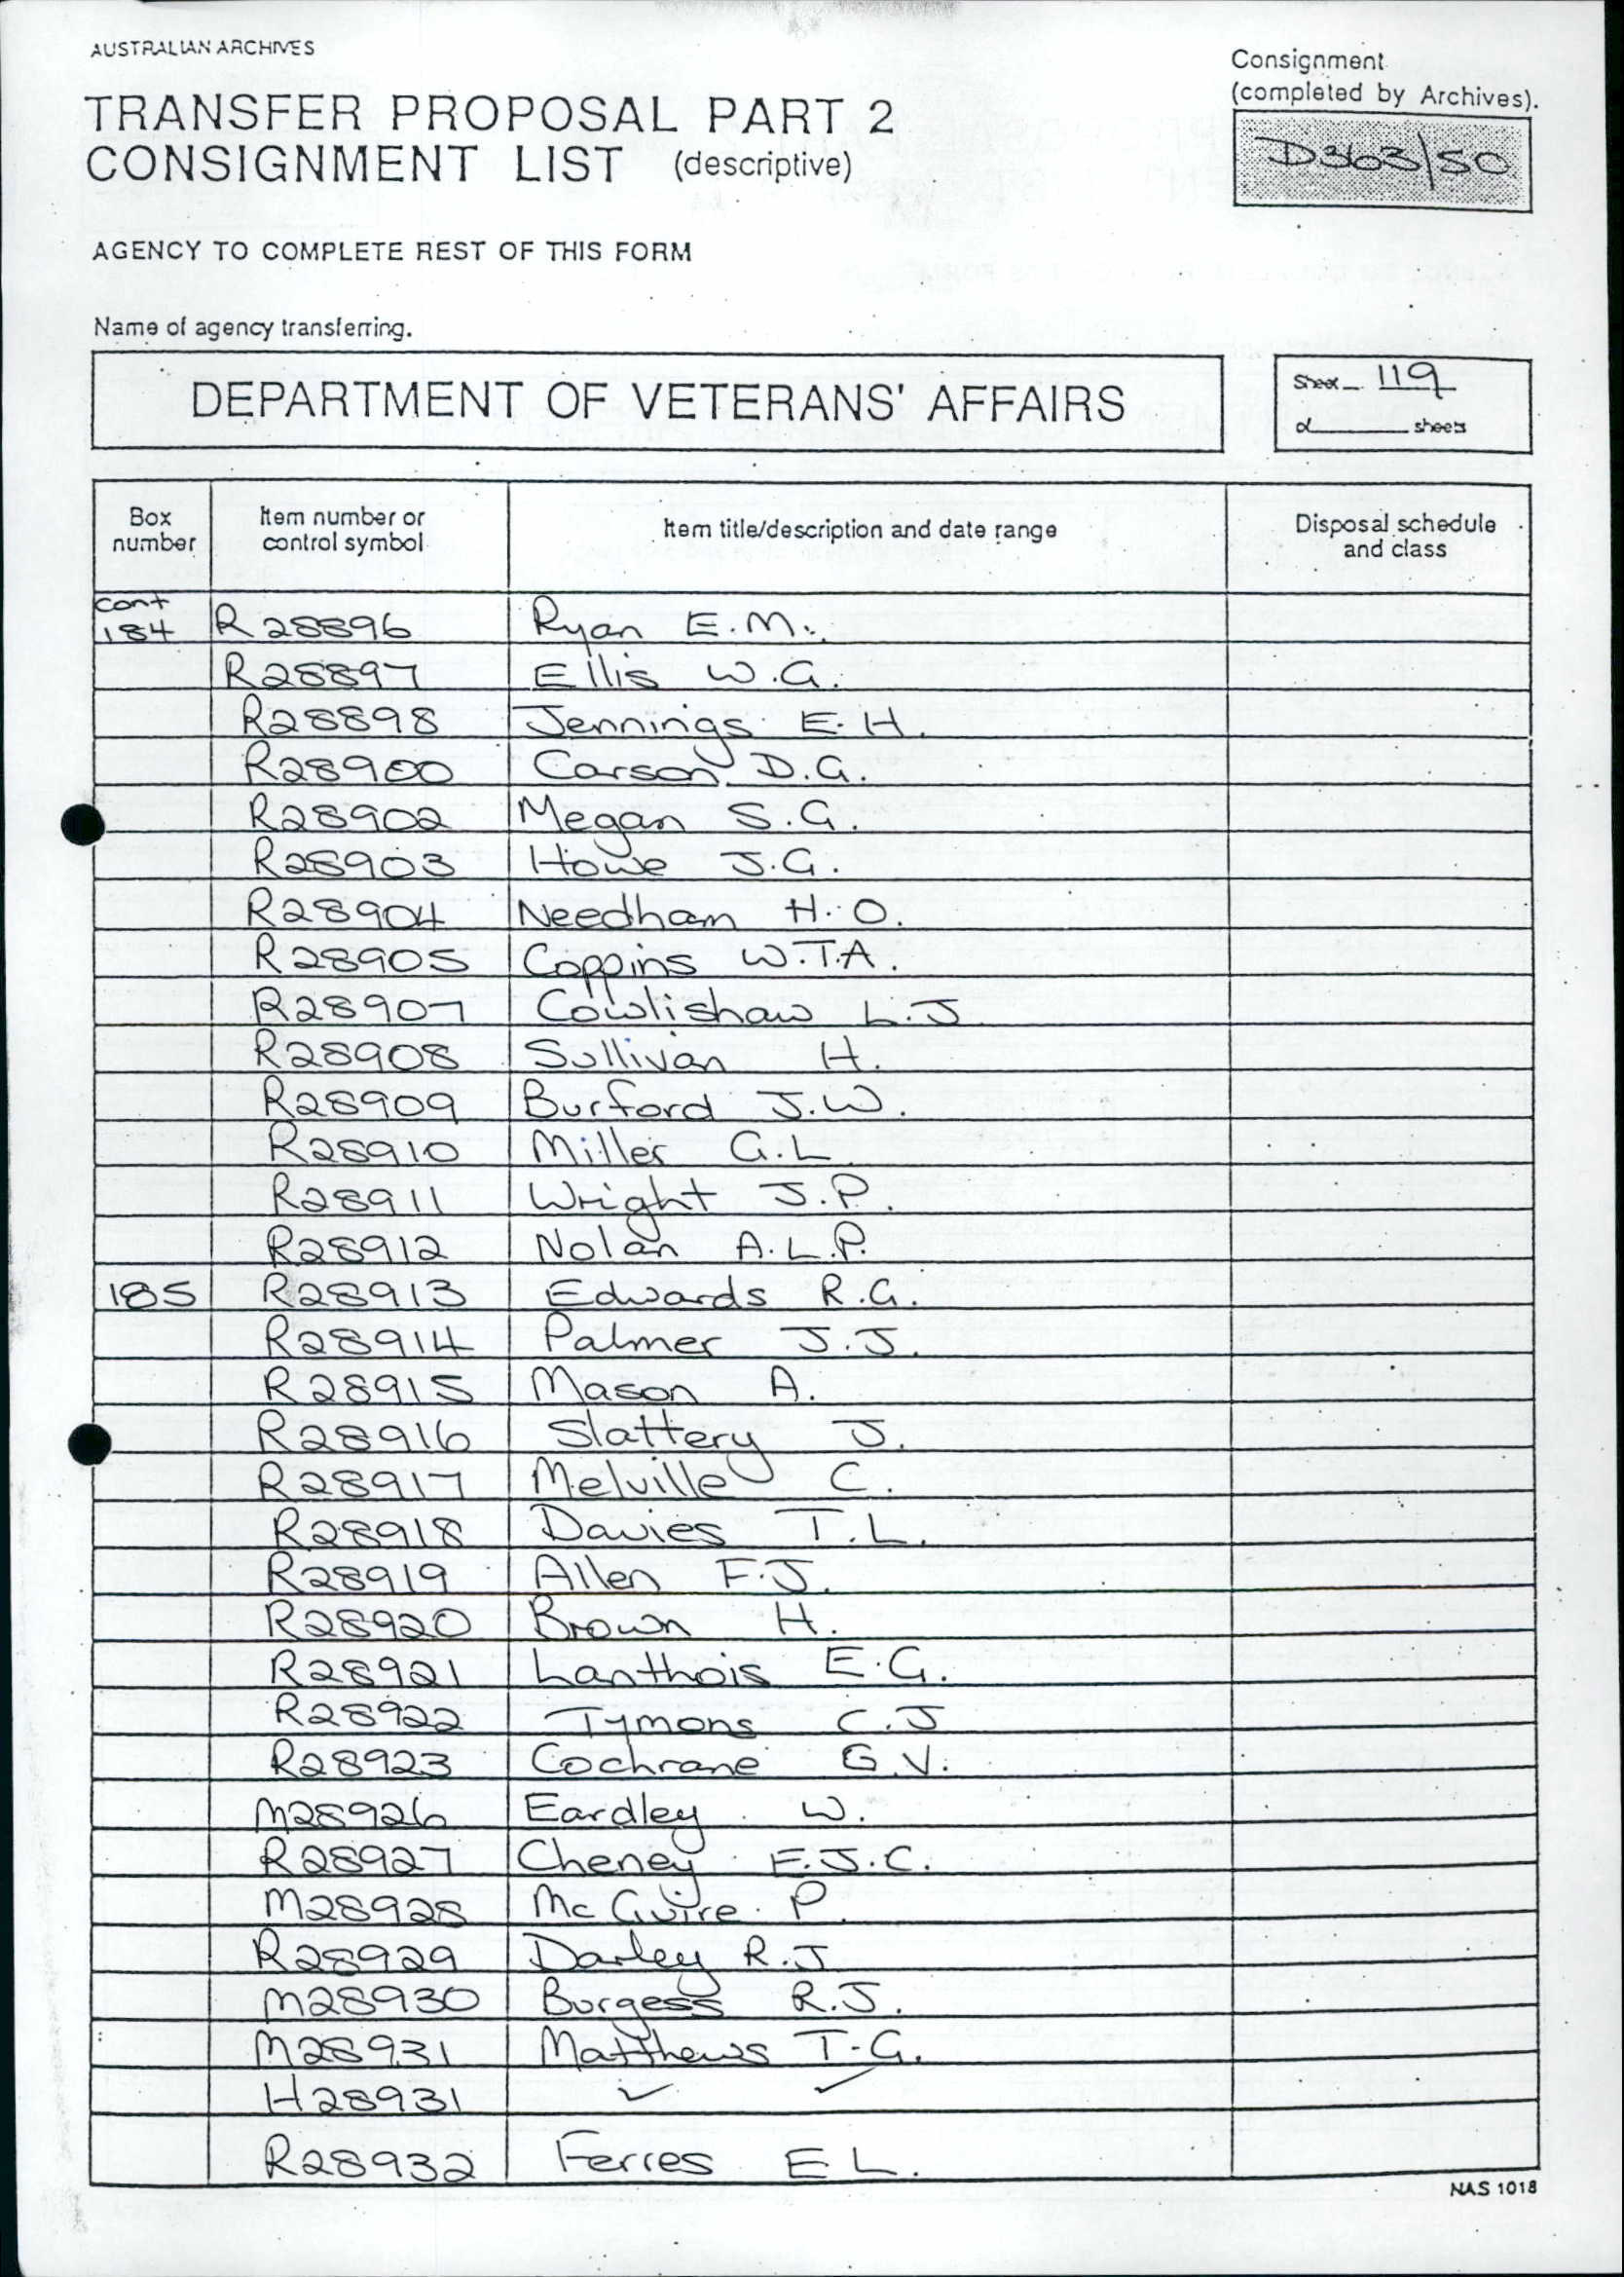 AUSTRALIAN ARCHIVES
Consignment
(completed by Archives).
TRANSFER PROPOSAL PART 2
CONSIGNMENT LIST (descriptive)
D363/SC
AGENCY TO COMPLETE REST OF THIS FORM
Name of agency transferring.
DEPARTMENT OF VETERANS' AFFAIRS
Sheet 119
of sheets
Box number Item number or control symbol Item title/description and date range Disposal schedule and class
cont 184 R28896 Ryan E.M.
R28897 Ellis W.G.
R28898 Jennings E.H.
R28900 Carson D.G.
R28902 Megan S.G.
R28903 Howe J.G.
R28904 Needham H.O.
R28905 Coppins W.T.A.
R28907 Cowlishaw L.J
R28908 Sullivan H.
R28909 Burford J.W.
R28910 Miller G.L
R28911 Wright J.P.
R28912 Nolan A.L.P.
185 R28913 Edwards R.G.
R28914 Palmer J.J.
R28915 Mason A.
R28916 Slattery J.
R28917 Melville C.
R28918 Davies T.L.
R28919 Allen F.J.
R28920 Brown H.
R28921 Lanthois E.G.
R28922 Tymons C.J
R28923 Cochrane G.V.
M28926 Eardley W.
R28927 Cheney E.J.C.
M28928 McGuire P.
R28929 Darley R.J
M28930 Burgess R.J.
M28931 Matthews T.G.
H28931 ✓ ✓
R28932 Ferres E.L.
NAS 1018